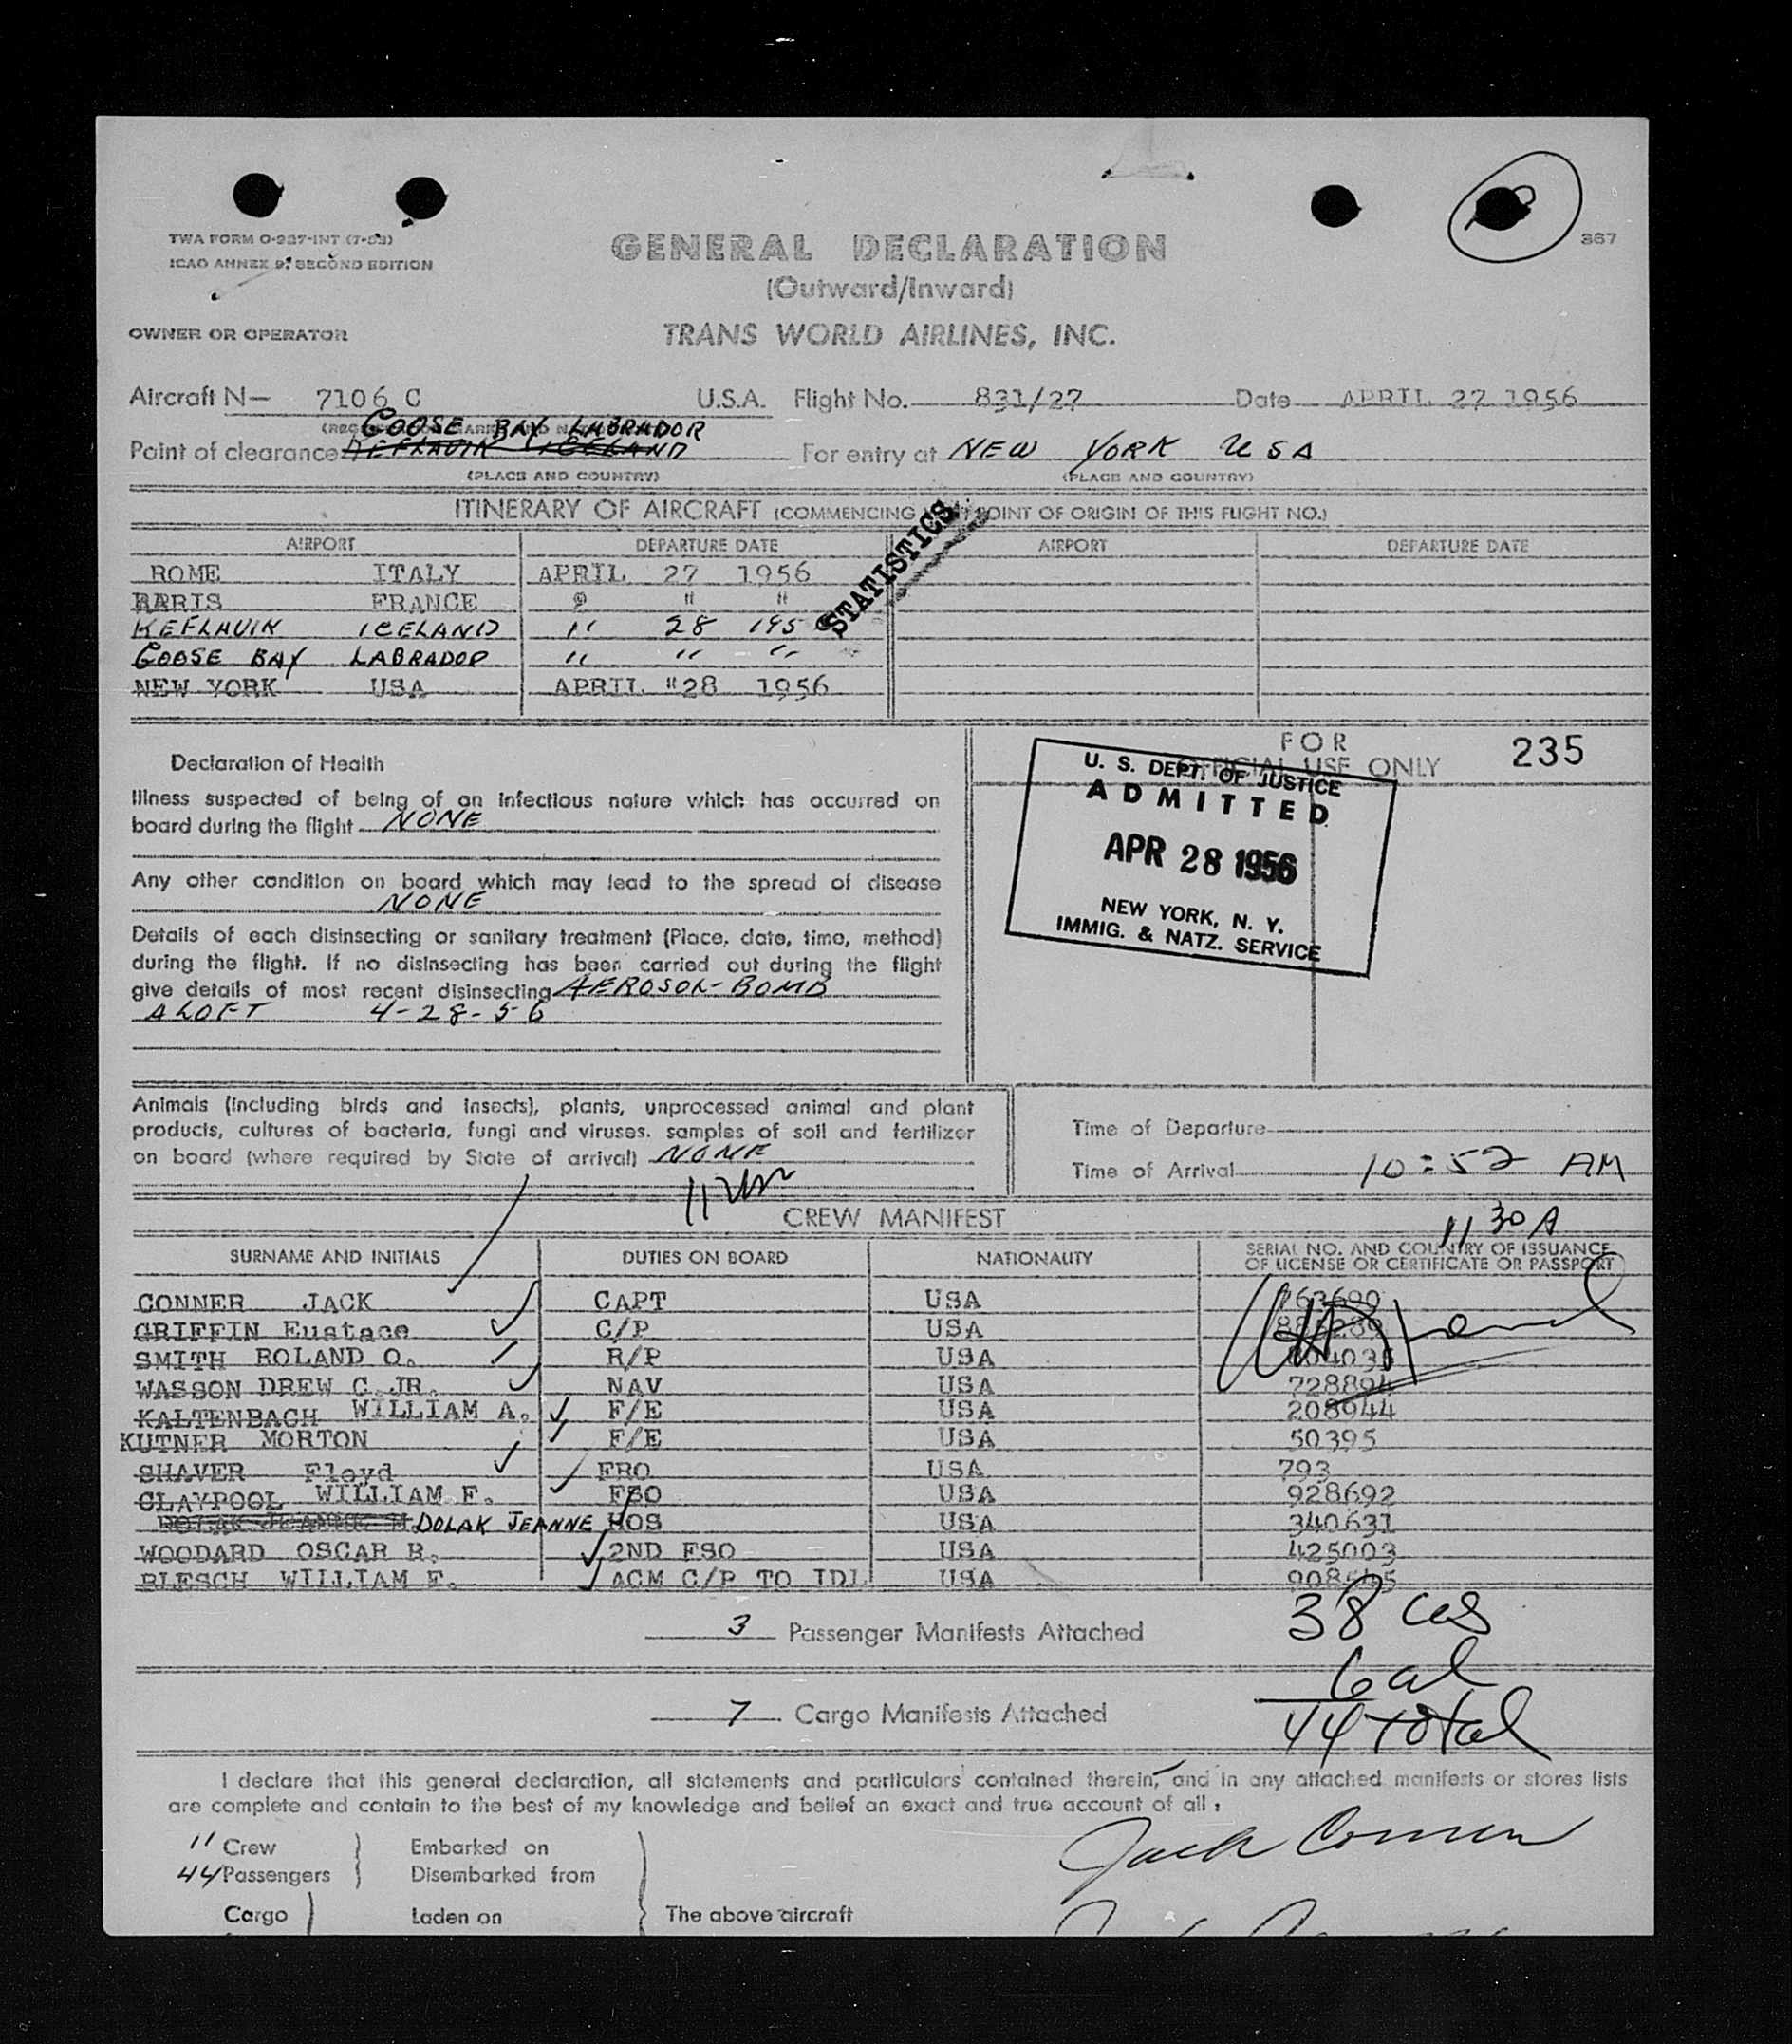 TWA FORM O-937-INT (7-53)
ICAO ANNEX 9, SECOND EDITION
367
GENERAL DECLARATION
(Outward/Inward)
OWNER OR OPERATOR TRANS WORLD AIRLINES, INC.
Aircraft N— 7106 C U.S.A. Flight No. 831/27 Date APRIL 27 1956
GOOSE BAY LABRADOR
Point of clearance KEFLAVIK ICELAND For entry at NEW YORK USA
(PLACE AND COUNTRY) (PLACE AND COUNTRY)
ITINERARY OF AIRCRAFT (COMMENCING POINT OF ORIGIN OF THIS FLIGHT NO.)
STATISTICS
AIRPORT DEPARTURE DATE AIRPORT DEPARTURE DATE
ROME ITALY APRIL 27 1956
PARIS FRANCE " " "
KEFLAVIK ICELAND " 28 1956
GOOSE BAY LABRADOR " " "
NEW YORK USA APRIL "28 1956
FOR
OFFICIAL USE ONLY 235
U. S. DEPT. OF JUSTICE
ADMITTED
APR 28 1956
NEW YORK, N. Y.
IMMIG. & NATZ. SERVICE
Declaration of Health
Illness suspected of being of an infectious nature which has occurred on
board during the flight NONE
Any other condition on board which may lead to the spread of disease
NONE
Details of each disinsecting or sanitary treatment (Place, date, time, method)
during the flight. If no disinsecting has been carried out during the flight
give details of most recent disinsecting AEROSOL BOMB
ALOFT 4-28-56
Animals (including birds and insects), plants, unprocessed animal and plant
products, cultures of bacteria, fungi and viruses. samples of soil and fertilizer
on board (where required by State of arrival) NONE
Time of Departure
Time of Arrival 10:52 AM
CREW MANIFEST
11 30 A
SURNAME AND INITIALS DUTIES ON BOARD NATIONALITY SERIAL NO. AND COUNTRY OF ISSUANCE
OF LICENSE OR CERTIFICATE OR PASSPORT
CONNER JACK CAPT USA
GRIFFIN Eustace C/P USA
SMITH ROLAND O. R/P USA
WASSON DREW C.JR. NAV USA 728894
KALTENBACH WILLIAM A. F/E USA 208944
KUTNER MORTON F/E USA 50395
SHAVER Floyd FRO USA 793
CLAYPOOL WILLIAM F. FSO USA 928692
DOLAK JEANNE M DOLAK JEANNE HOS USA 340631
WOODARD OSCAR R. 2ND FSO USA 425003
BLESCH WILLIAM F. ACM C/P TO IDL USA
3 Passenger Manifests Attached
38 ces
6 al
44 total
7 Cargo Manifests Attached
I declare that this general declaration, all statements and particulars contained therein, and in any attached manifests or stores lists
are complete and contain to the best of my knowledge and belief an exact and true account of all :
11 Crew Embarked on
44 Passengers Disembarked from
Jack Conner
Cargo Laden on The above aircraft